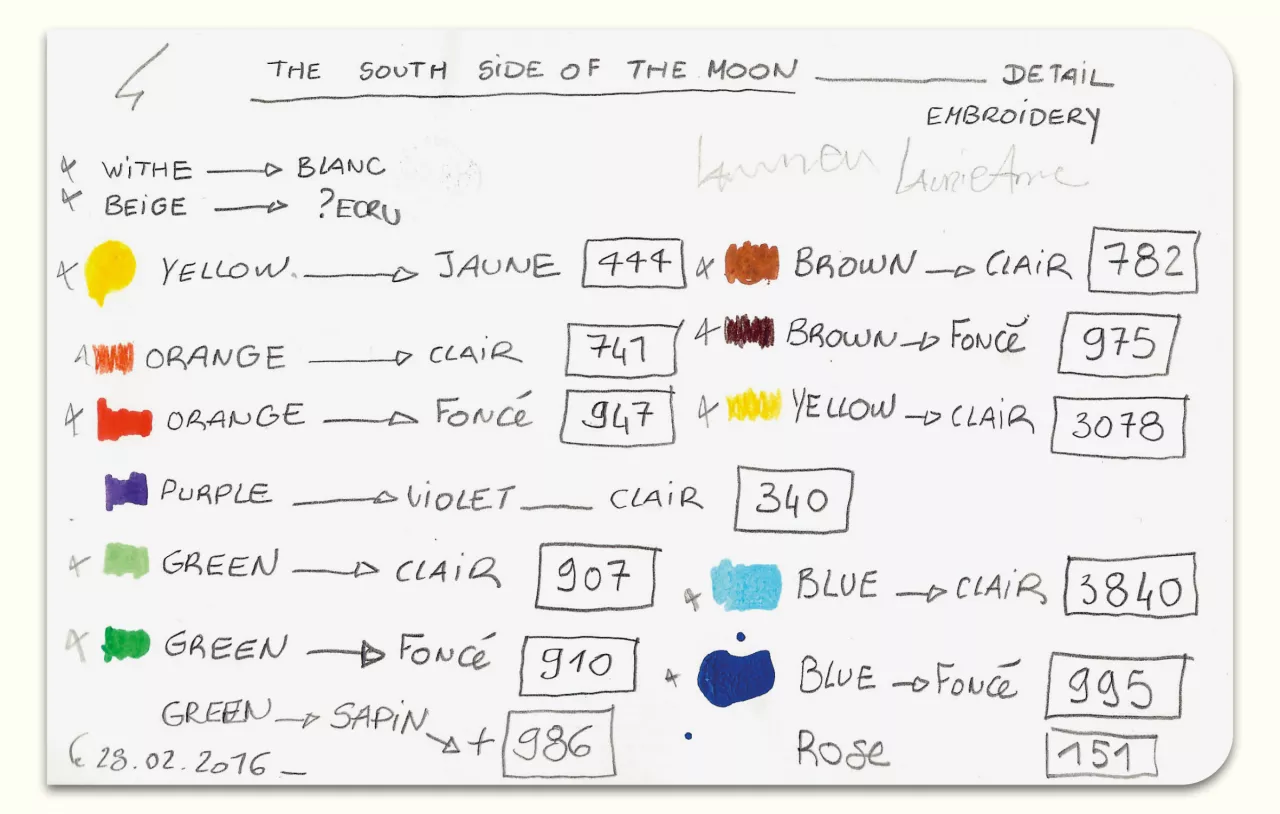 4
THE SOUTH SIDE OF THE MOON DETAIL
EMBROIDERY
WITHE → BLANC
BEIGE → ?ECRU
LaurieAnne
YELLOW. → JAUNE 444
ORANGE → CLAIR 741
ORANGE → FONCÉ 947
PURPLE → VIOLET __ CLAIR 340
GREEN → CLAIR 907
GREEN → FONCÉ 910
GREEN → SAPIN → + 986
BROWN → CLAIR 782
BROWN → FONCÉ 975
YELLOW → CLAIR 3078
BLUE → CLAIR 3840
BLUE → FONCÉ 995
ROSE 151
Le 28.02.2016 _